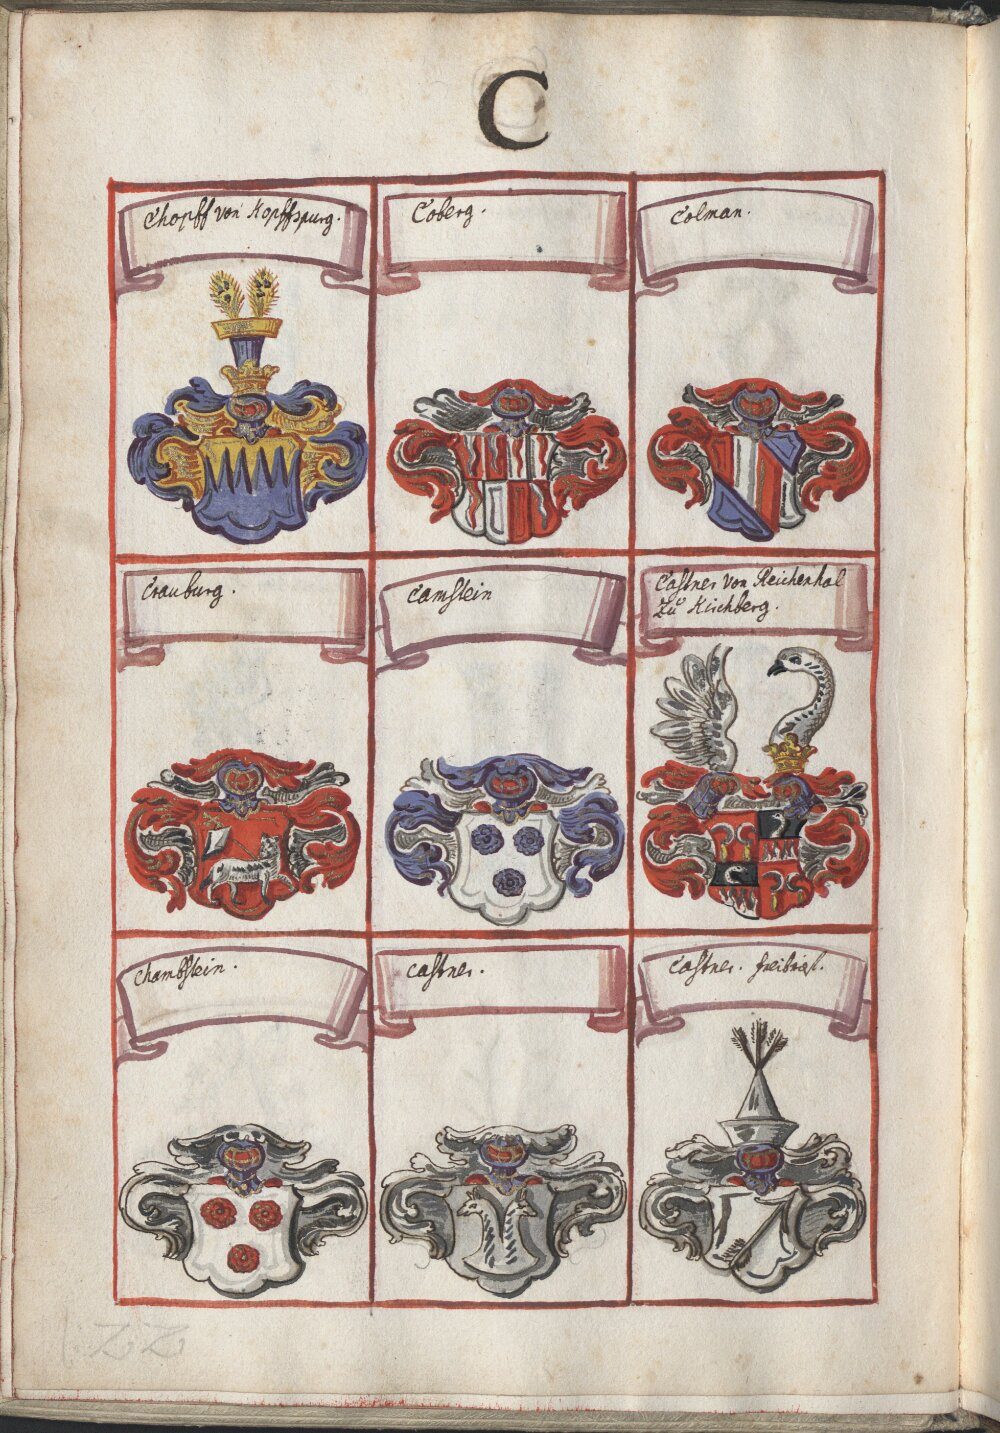 C
Chopff von Kopffspurg.
Coberg.
Colman.
Crauburg.
Camstein
Castner von Reichenhal
Zu Kirchberg.
Chambstein.
Castner.
Castner.